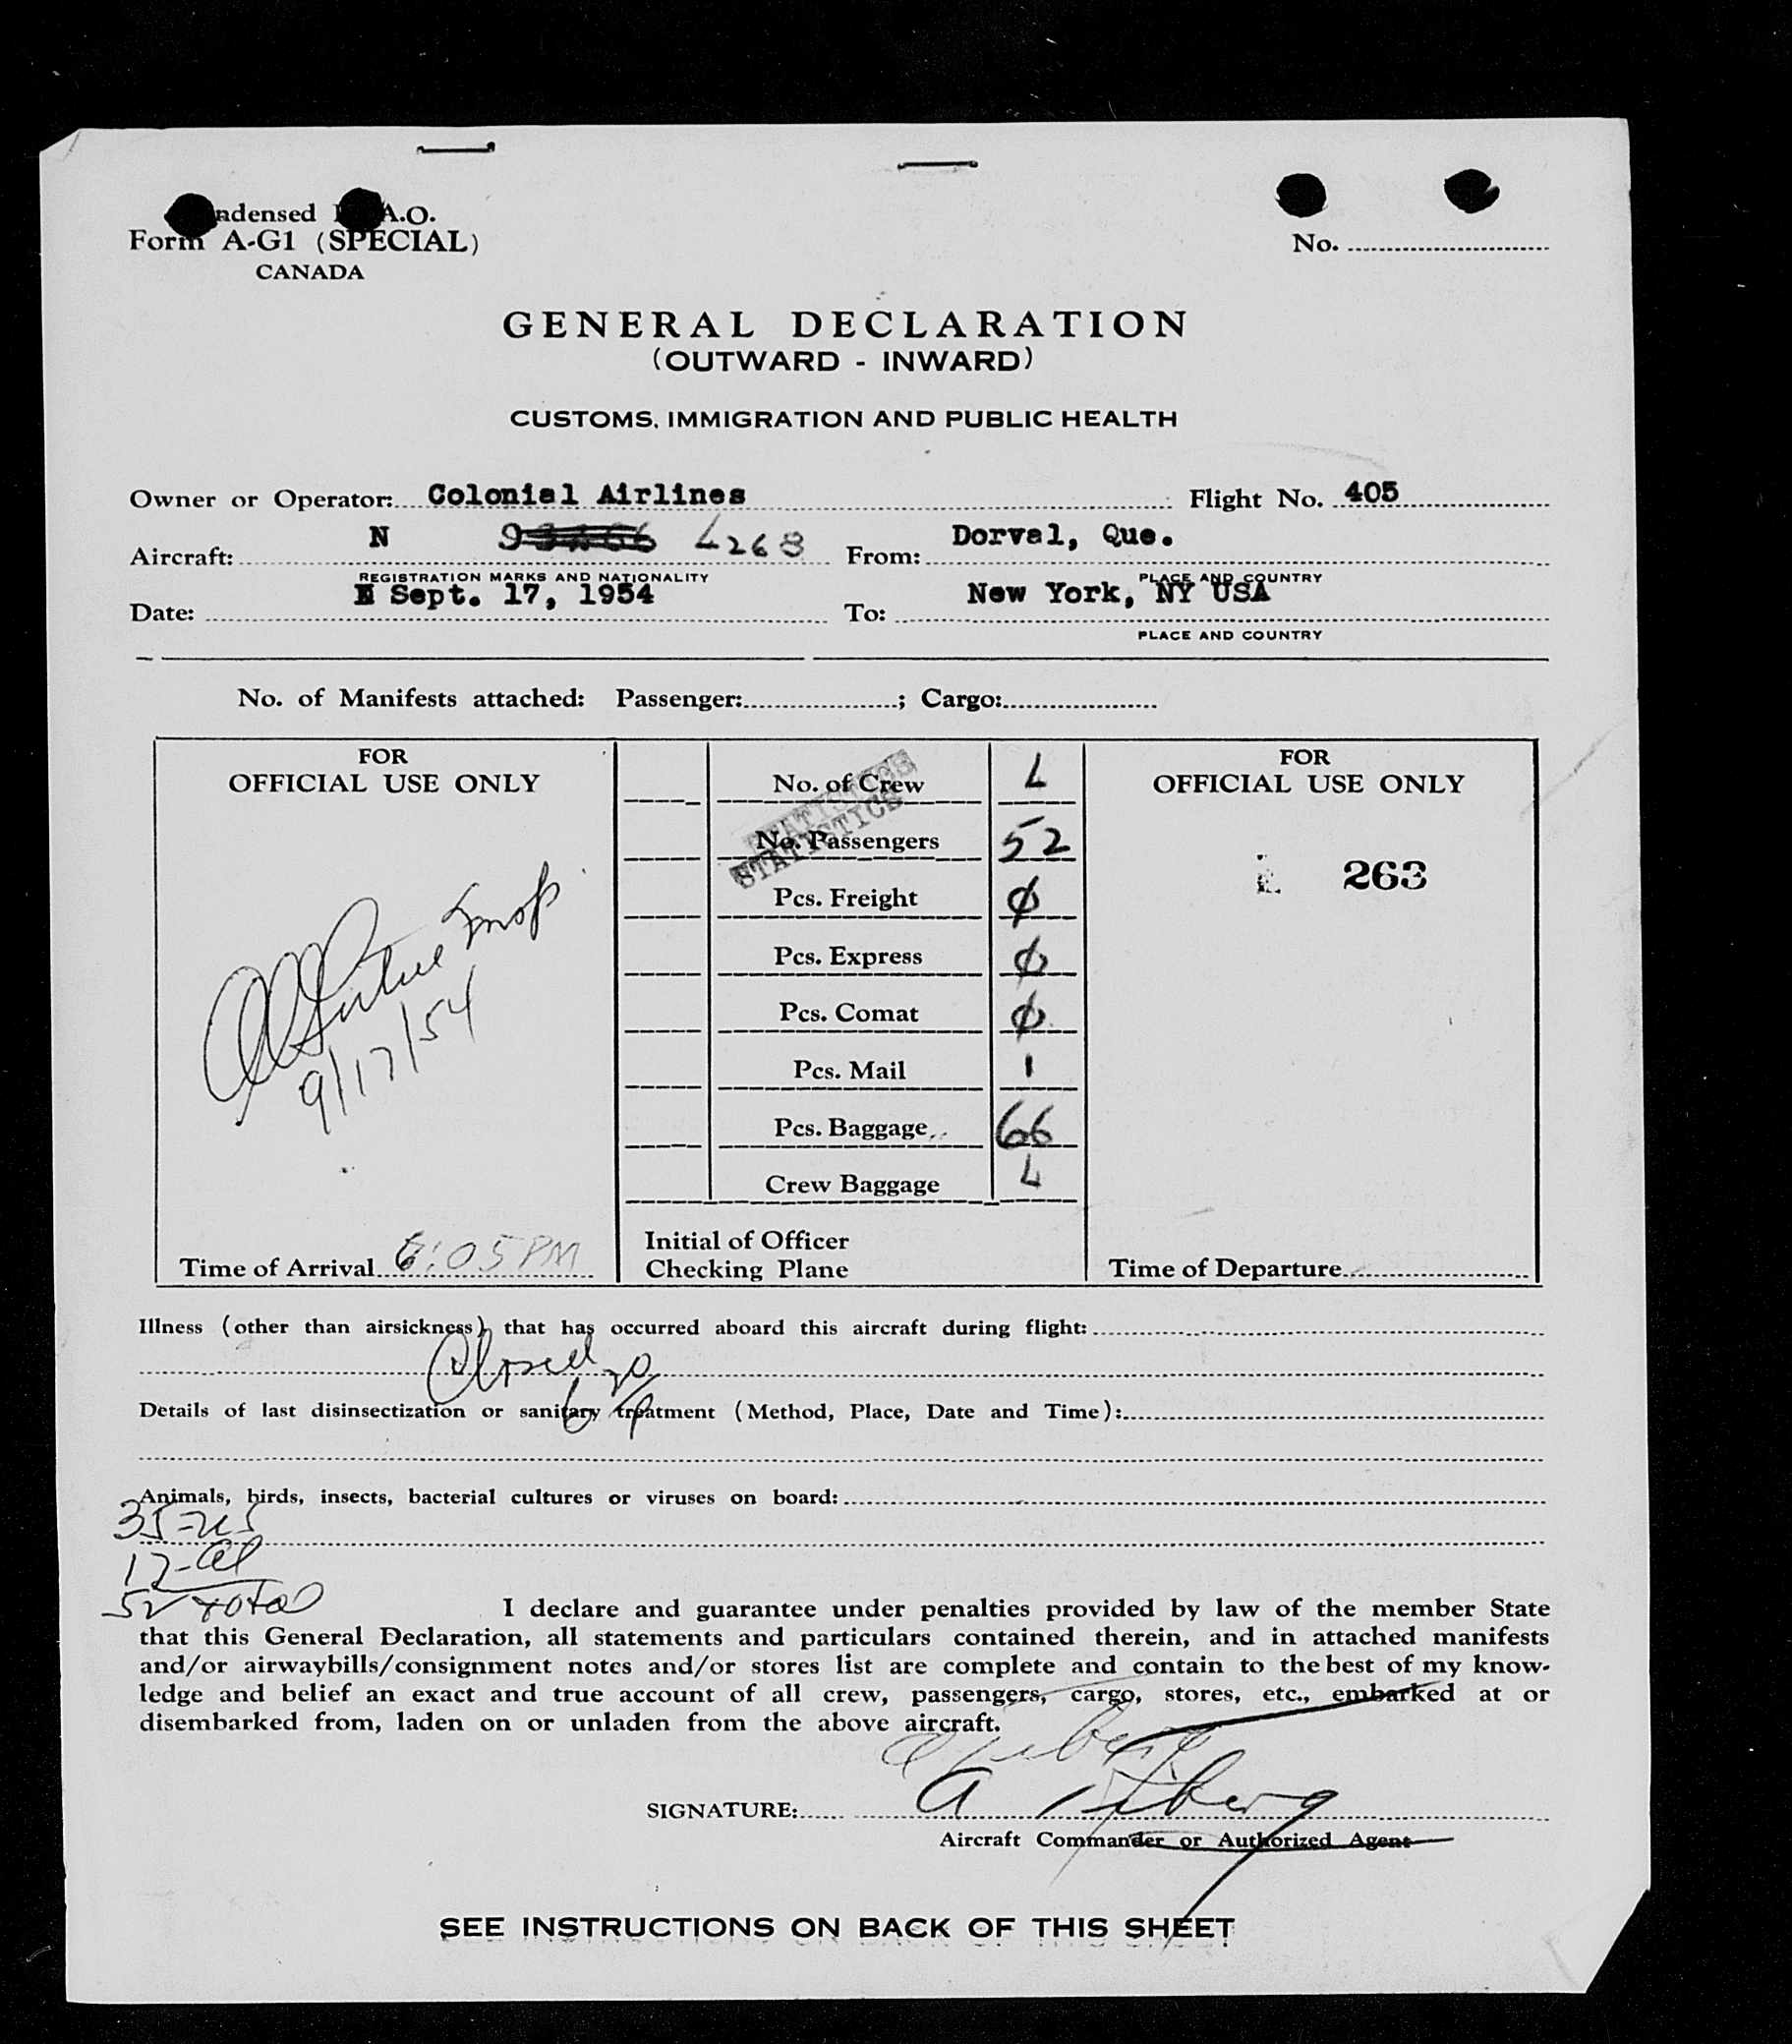 ndensed A.O.
Form A-G1 (SPECIAL)
CANADA
No.
GENERAL DECLARATION
(OUTWARD - INWARD)
CUSTOMS, IMMIGRATION AND PUBLIC HEALTH
Owner or Operator: Colonial Airlines Flight No. 405
Aircraft: N 4268 From: Dorval, Que.
REGISTRATION MARKS AND NATIONALITY PLACE AND COUNTRY
Date: Sept. 17, 1954 To: New York, NY USA
PLACE AND COUNTRY
No. of Manifests attached: Passenger: ; Cargo:
FOR
OFFICIAL USE ONLY
9/17/54
Time of Arrival 6:05 PM
No. of Crew 4
No. Passengers 52
STATISTICS
STATISTICS
Pcs. Freight ϕ
Pcs. Express ϕ
Pcs. Comat ϕ
Pcs. Mail 1
Pcs. Baggage 66
Crew Baggage 4
Initial of Officer
Checking Plane
FOR
OFFICIAL USE ONLY
263
Time of Departure
Illness (other than airsickness) that has occurred aboard this aircraft during flight:
Closed
Details of last disinsectization or sanitary treatment (Method, Place, Date and Time):
Animals, birds, insects, bacterial cultures or viruses on board:
35-US
17-al
52 total
I declare and guarantee under penalties provided by law of the member State
that this General Declaration, all statements and particulars contained therein, and in attached manifests
and/or airwaybills/consignment notes and/or stores list are complete and contain to the best of my know-
ledge and belief an exact and true account of all crew, passengers, cargo, stores, etc., embarked at or
disembarked from, laden on or unladen from the above aircraft.
SIGNATURE:
Aircraft Commander or Authorized Agent
SEE INSTRUCTIONS ON BACK OF THIS SHEET